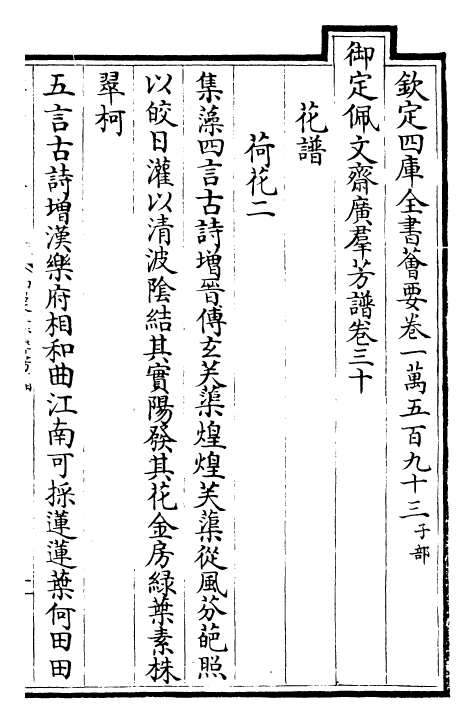 欽定四庫全書薈要卷一萬五百九十三子部
御定佩文齋廣羣芳譜卷三十
花譜
荷花二
集藻四言古詩增晉傅玄芙蕖煌煌芙蕖從風芬葩照
以皎日灌以清波陰結其實陽發其花金房綠葉素株
翠柯
五言古詩增漢樂府相和曲江南可採蓮蓮葉何田田